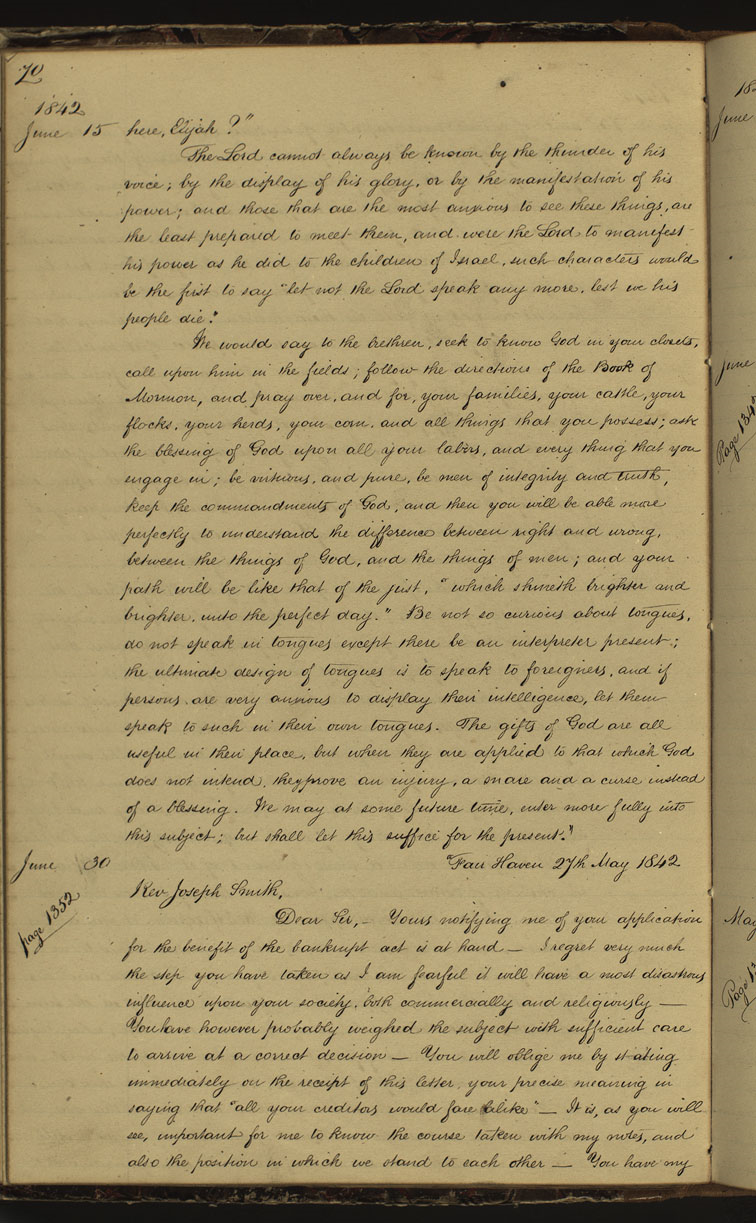 70
1842
June 15 here, Elijah?"
The Lord cannot always be known by the thunder of his
voice; by the display of his glory, or by the manifestation of his
power; and those that are the most anxious to see these things, are
the least prepared to meet them, and were the Lord to manifest
his power as he did to the children of Israel, such characters would
be the first to say "let not the Lord speak any more, lest we his
people die."
We would say to the brethren, seek to know God in your closets,
call upon him in the fields; follow the directions of the Book of
Mormon, and pray over, and for, your families, your cattle, your
flocks, your herds, your corn, and all things that you possess; ask
the blessing of God upon all your labors, and every thing that you
engage in; be virtuous, and pure, be men of integrity and truth,
keep the commandments of God, and then you will be able more
perfectly to understand the difference between right and wrong,
between the things of God, and the things of men; and your
path will be like that of the just, "which shineth brighter and
brighter, unto the perfect day." Be not so curious about tongues,
do not speak in tongues except there be an interpreter present;
the ultimate design of tongues is to speak to foreigners, and if
persons are very anxious to display their intelligence, let them
speak to such in their own tongues. The gifts of God are all
useful in their place, but when they are applied to that which God
does not intend, they prove an injury, a snare and a curse instead
of a blessing. We may at some future time, enter more fully into
this subject; but shall let this suffice for the present."
June 30 "Fair Haven 27th May 1842
Rev Joseph Smith,
page 1352
Dear Sir,– Yours notifying me of your application
for the benefit of the bankrupt act is at hand – I regret very much
the step you have taken as I am fearful it will have a most disastrous
influence upon your society, both commercially and religiously –
You have however probably weighed the subject with sufficient care
to arrive at a correct decision – You will oblige me by stating
immediately on the receipt of this letter, your precise meaning in
saying that "all your creditors would fare alike" – It is, as you will
see, important for me to know the course taken with my notes, and
also the position in which we stand to each other – You have my
June
June
Page 134
May
Page 13